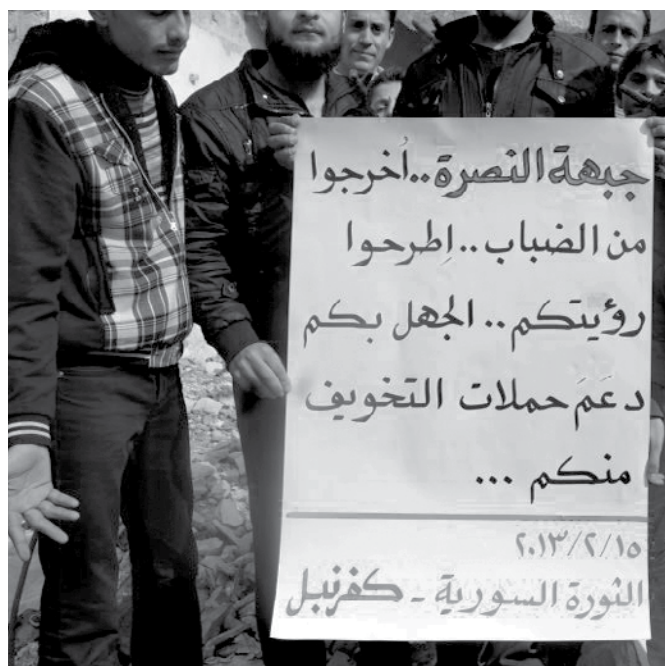 جبهة النصرة..أُخرجوا
من الضباب..اِطرحوا
رؤيتكم.. الجهل بكم
دعَمَ حملات التخويف
منكم ...
٢٠١٣/٢/١٥
الثورة السورية - كفرنبل